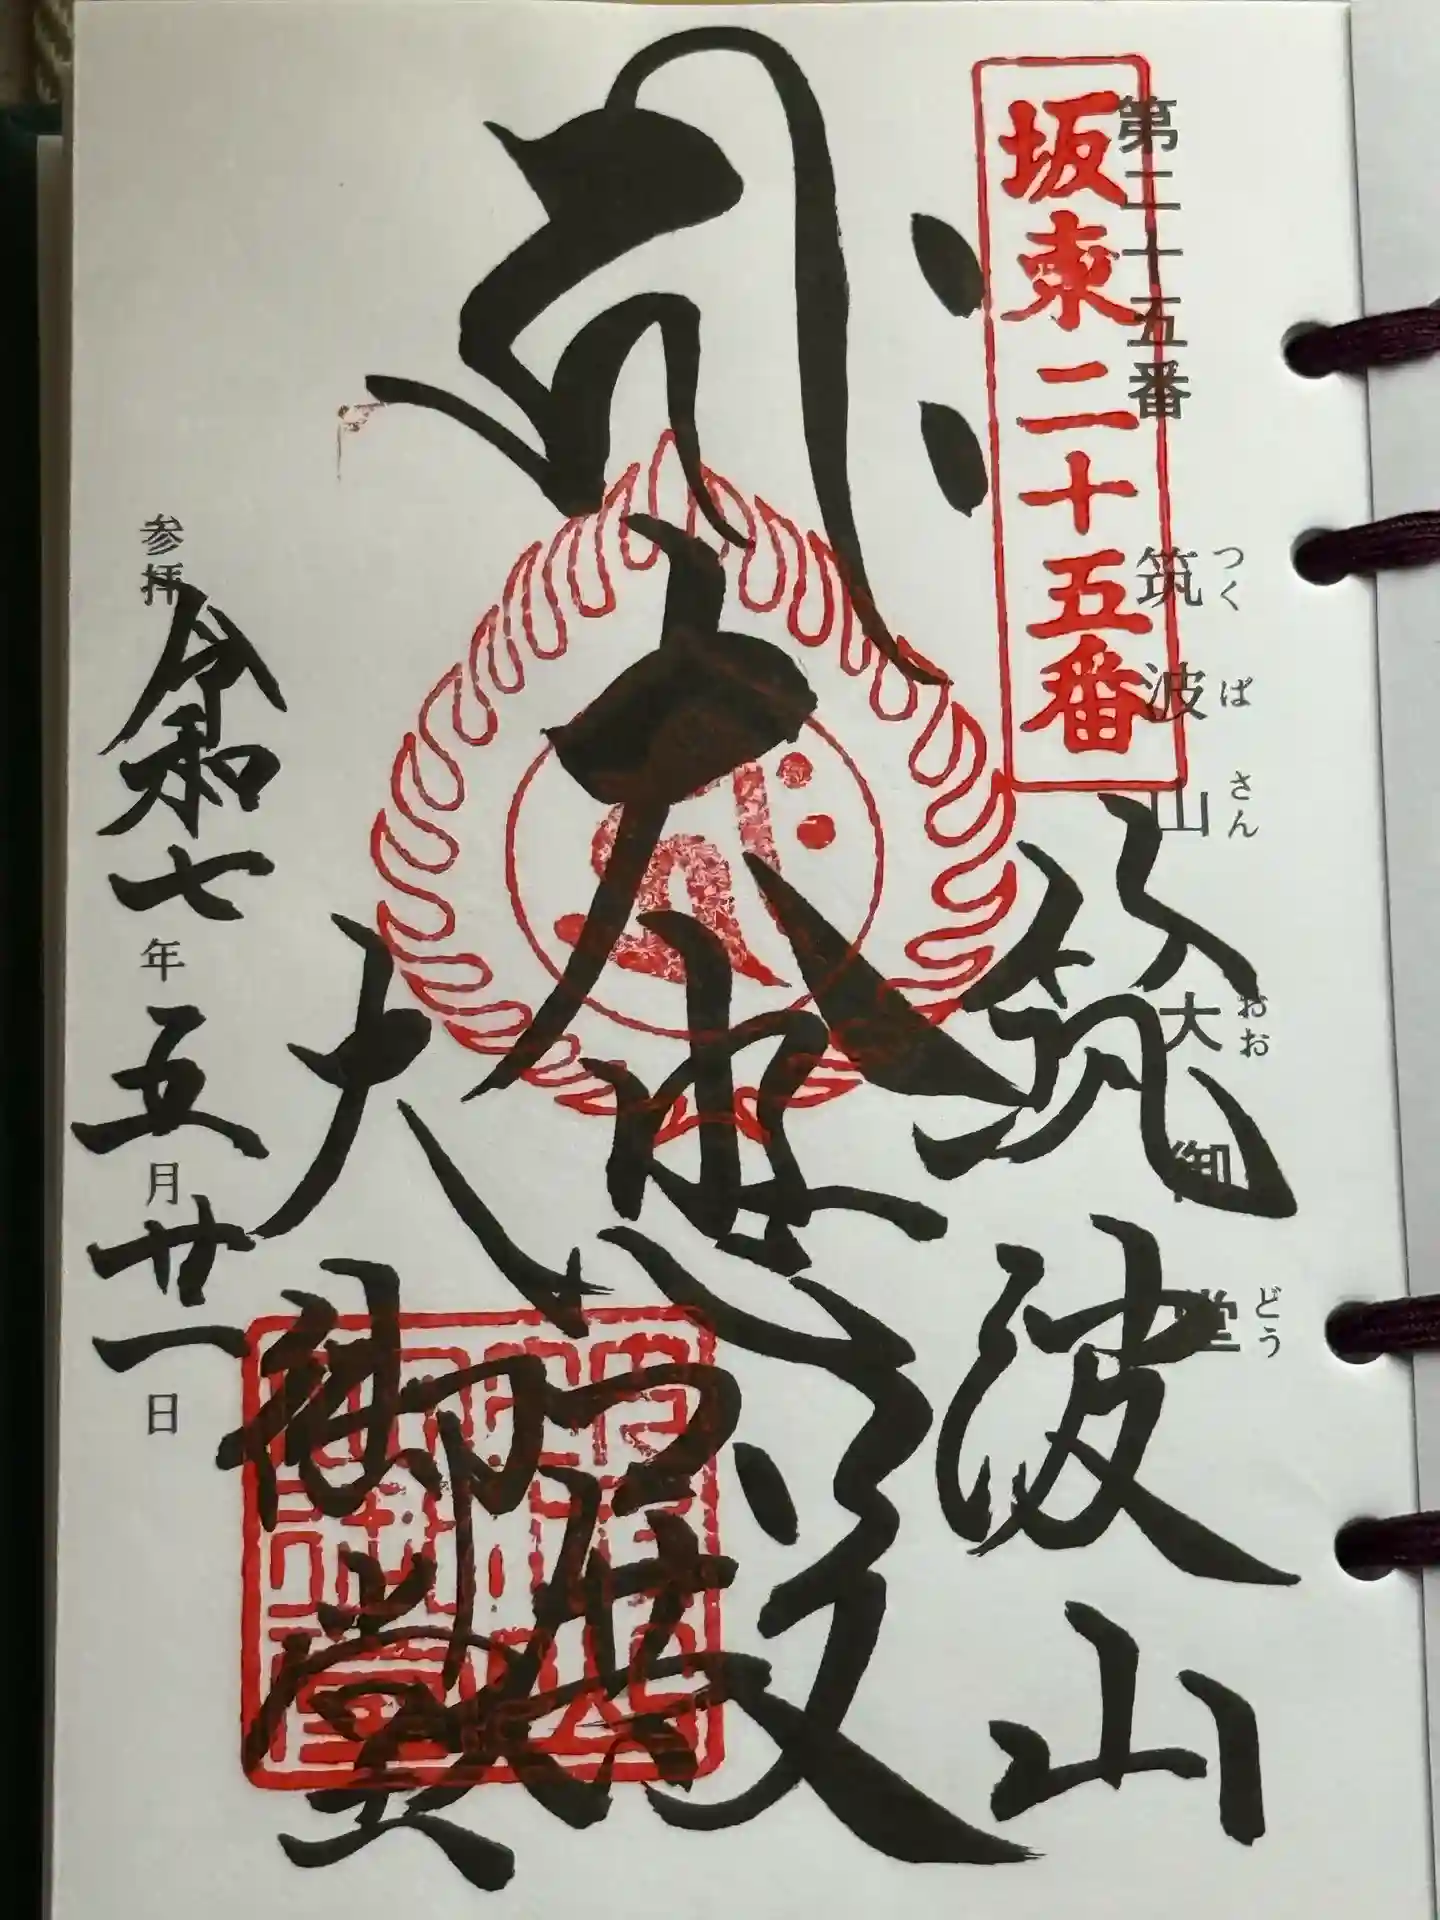 第二十五番
筑波山
つくばさん
大御堂
おおどう
坂東二十五番
筑波山
大悲殿
大御堂
参拝
令和七年五月廿一日